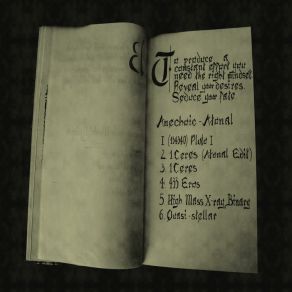 To produce a
constant effort you
need the right mindset
Reveal your desires
Seduce your fate
Anechoic - Atonal
1 (134340) Pluto I
2. 1 Ceres (Atonal Edit)
3. 1 Ceres
4. 433 Eros
5. High Mass X-ray Binary
6. Quasi-stellar